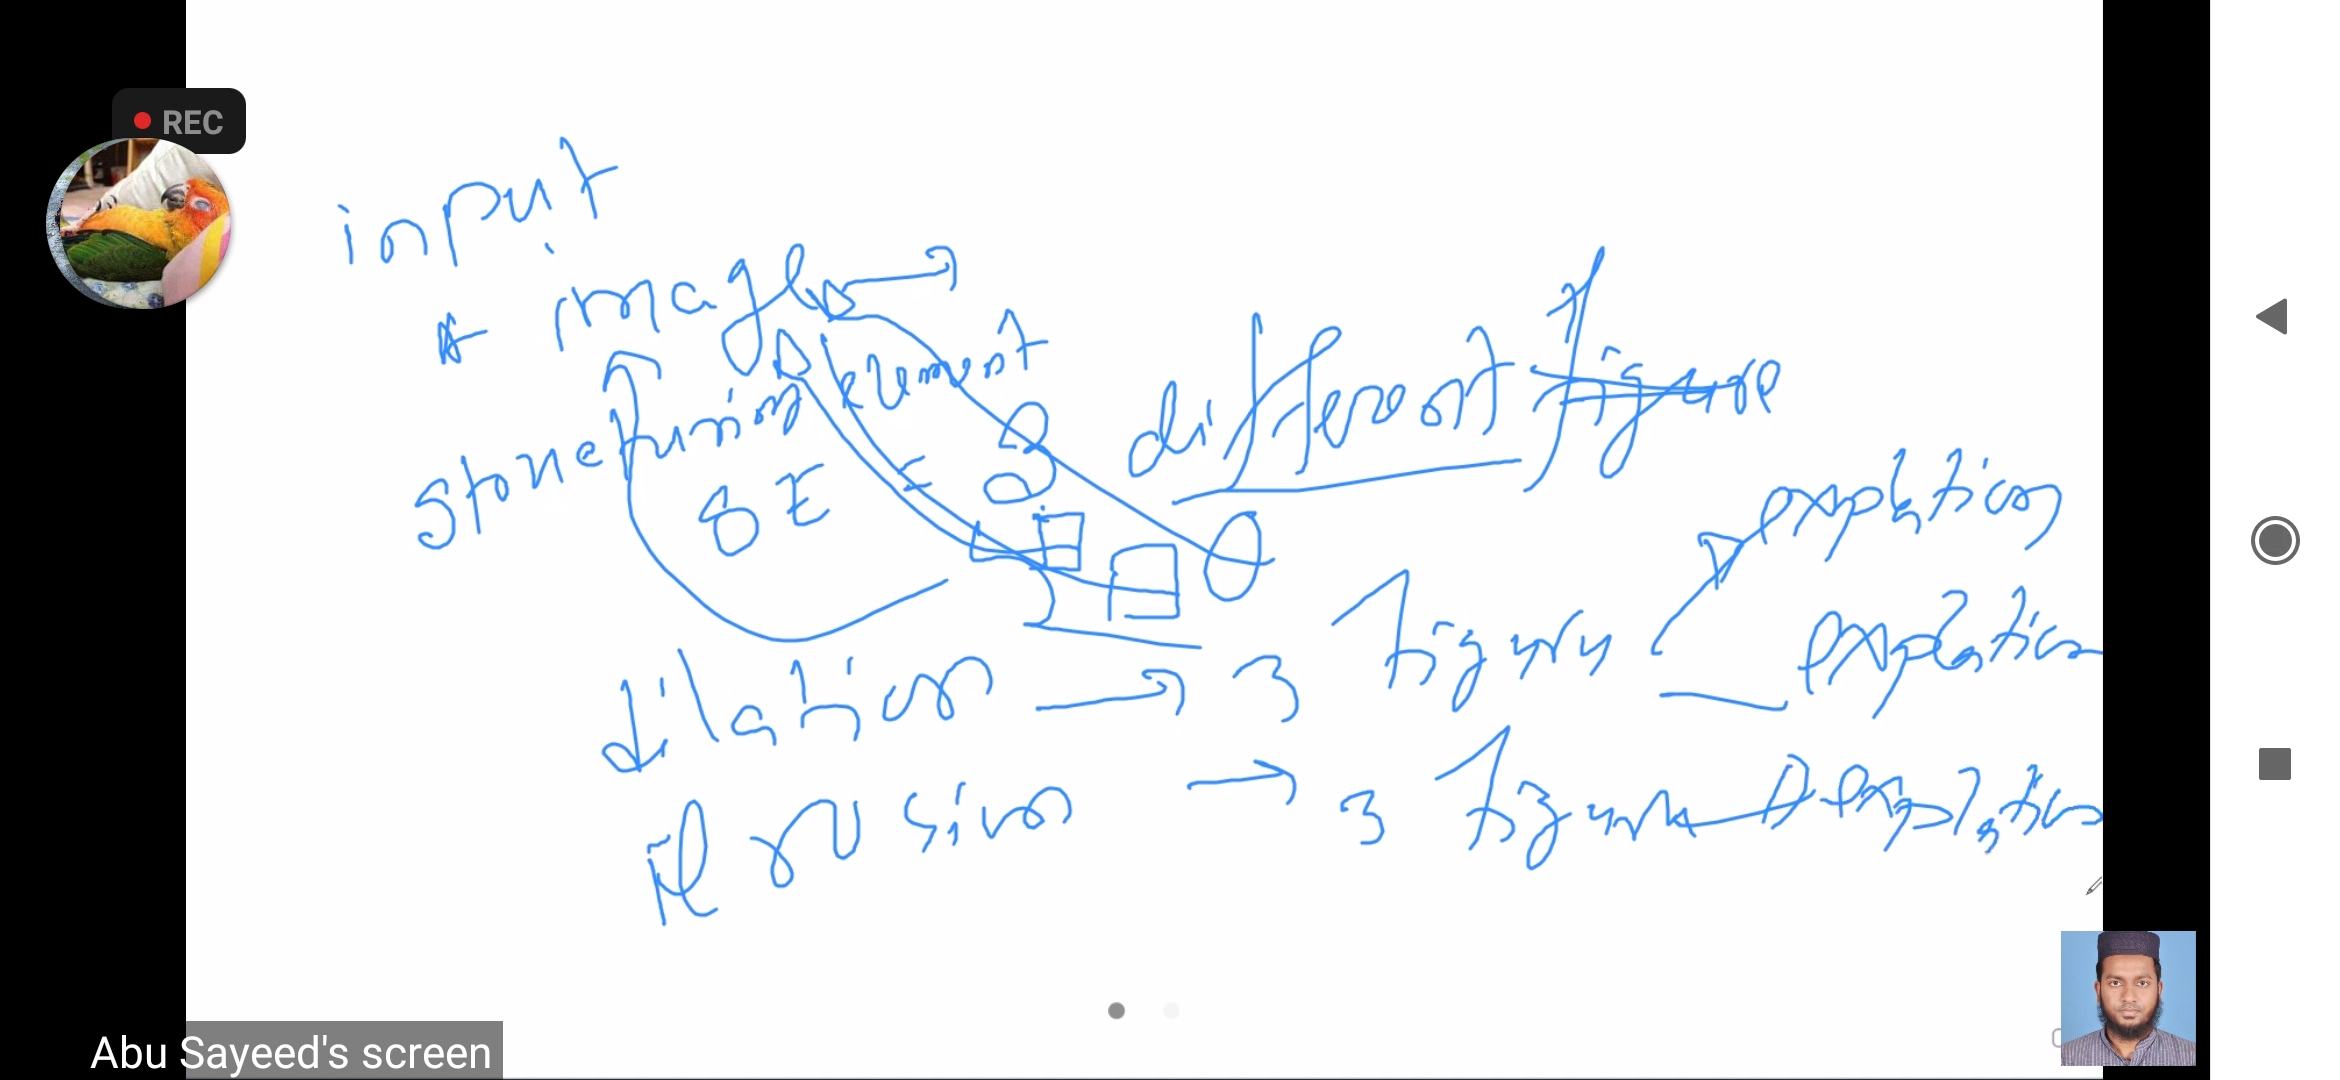 REC
input
image
structuring element
SE = 3
different figure
explation
dilation → 3 figure explation
Erosion → 3 figure explation
Abu Sayeed's screen